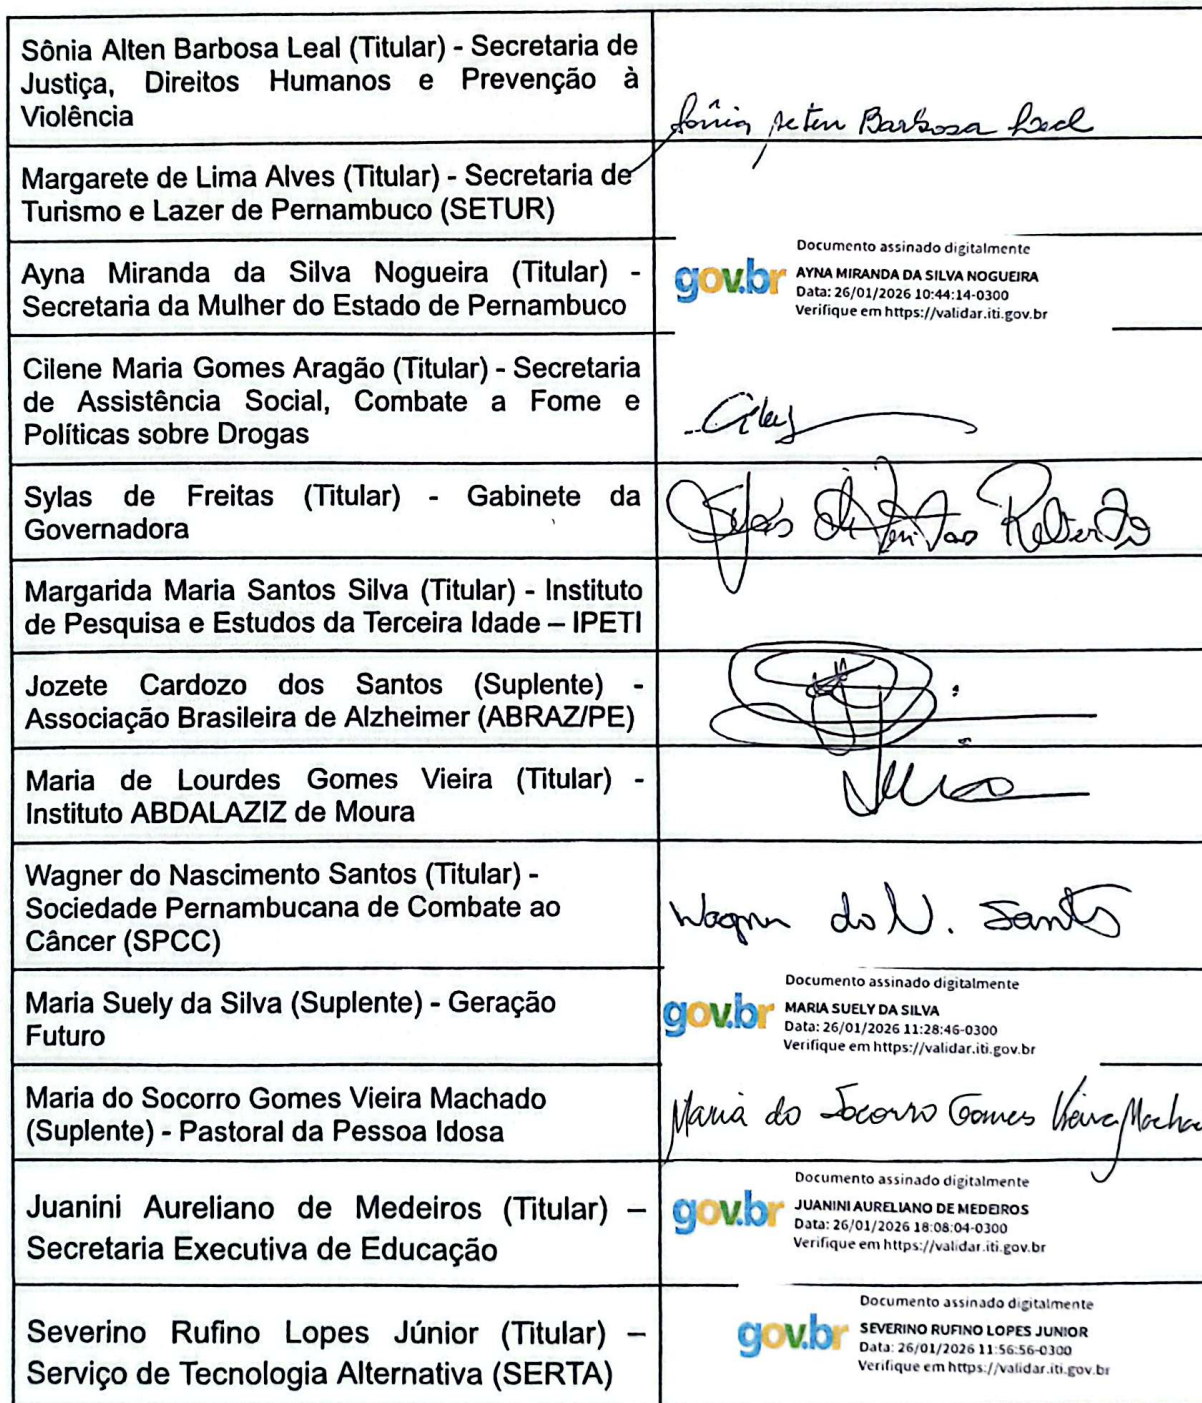 Sônia Alten Barbosa Leal (Titular) - Secretaria de
Justiça, Direitos Humanos e Prevenção à
Violência
Sônia Alten Barbosa Leal
Margarete de Lima Alves (Titular) - Secretaria de
Turismo e Lazer de Pernambuco (SETUR)
Ayna Miranda da Silva Nogueira (Titular) -
Secretaria da Mulher do Estado de Pernambuco
gov.br
Documento assinado digitalmente
AYNA MIRANDA DA SILVA NOGUEIRA
Data: 26/01/2026 10:44:14-0300
Verifique em https://validar.iti.gov.br
Cilene Maria Gomes Aragão (Titular) - Secretaria
de Assistência Social, Combate a Fome e
Políticas sobre Drogas
Sylas de Freitas (Titular) - Gabinete da
Governadora
Sylas de Freitas
Margarida Maria Santos Silva (Titular) - Instituto
de Pesquisa e Estudos da Terceira Idade – IPETI
Jozete Cardozo dos Santos (Suplente) -
Associação Brasileira de Alzheimer (ABRAZ/PE)
Maria de Lourdes Gomes Vieira (Titular) -
Instituto ABDALAZIZ de Moura
Wagner do Nascimento Santos (Titular) -
Sociedade Pernambucana de Combate ao
Câncer (SPCC)
Wagner do N. Santos
Maria Suely da Silva (Suplente) - Geração
Futuro
gov.br
Documento assinado digitalmente
MARIA SUELY DA SILVA
Data: 26/01/2026 11:28:46-0300
Verifique em https://validar.iti.gov.br
Maria do Socorro Gomes Vieira Machado
(Suplente) - Pastoral da Pessoa Idosa
Maria do Socorro Gomes Vieira Macha
Juanini Aureliano de Medeiros (Titular) –
Secretaria Executiva de Educação
gov.br
Documento assinado digitalmente
JUANINI AURELIANO DE MEDEIROS
Data: 26/01/2026 18:08:04-0300
Verifique em https://validar.iti.gov.br
Severino Rufino Lopes Júnior (Titular) –
Serviço de Tecnologia Alternativa (SERTA)
gov.br
Documento assinado digitalmente
SEVERINO RUFINO LOPES JUNIOR
Data: 26/01/2026 11:56:56-0300
Verifique em https://validar.iti.gov.br